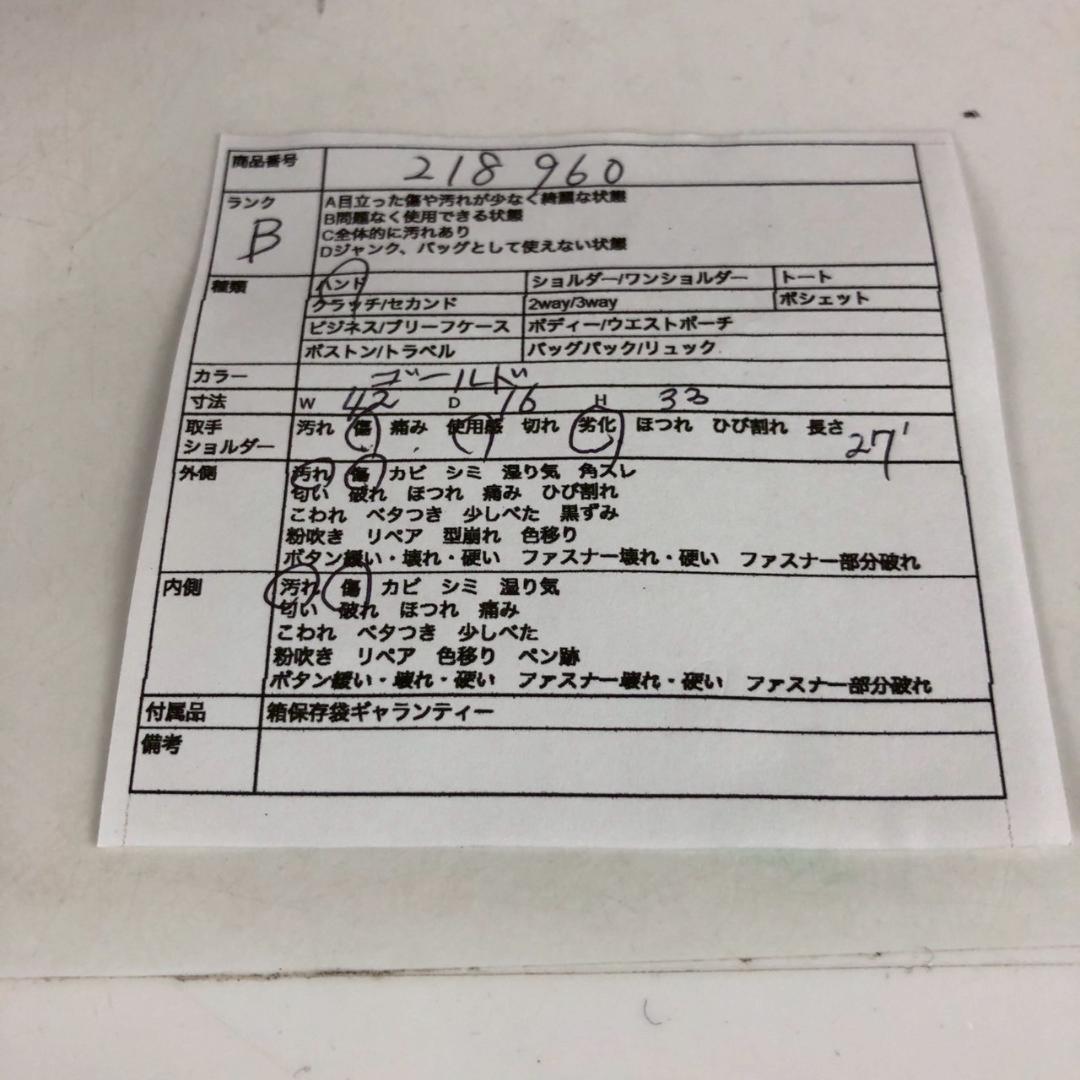 商品番号 218 960
ランク B
A目立った傷や汚れが少なく綺麗な状態
B問題なく使用できる状態
C全体的に汚れあり
Dジャンク、バッグとして使えない状態
種類 ハンド ショルダー/ワンショルダー トート
クラッチ/セカンド 2way/3way ポシェット
ビジネス/ブリーフケース ボディー/ウエストポーチ
ボストン/トラベル バッグパック/リュック
カラー ゴールド
寸法 W 42 D 16 H 33
取手 汚れ 傷 痛み 使用感 切れ 劣化 ほつれ ひび割れ 長さ 27
ショルダー
外側 汚れ 傷 カビ シミ 湿り気 角スレ
匂い 破れ ほつれ 痛み ひび割れ
こわれ ベタつき 少しべた 黒ずみ
粉吹き リペア 型崩れ 色移り
ボタン緩い・壊れ・硬い ファスナー壊れ・硬い ファスナー部分破れ
内側 汚れ 傷 カビ シミ 湿り気
匂い 破れ ほつれ 痛み
こわれ ベタつき 少しべた
粉吹き リペア 色移り ペン跡
ボタン緩い・壊れ・硬い ファスナー壊れ・硬い ファスナー部分破れ
付属品 箱保存袋ギャランティー
備考